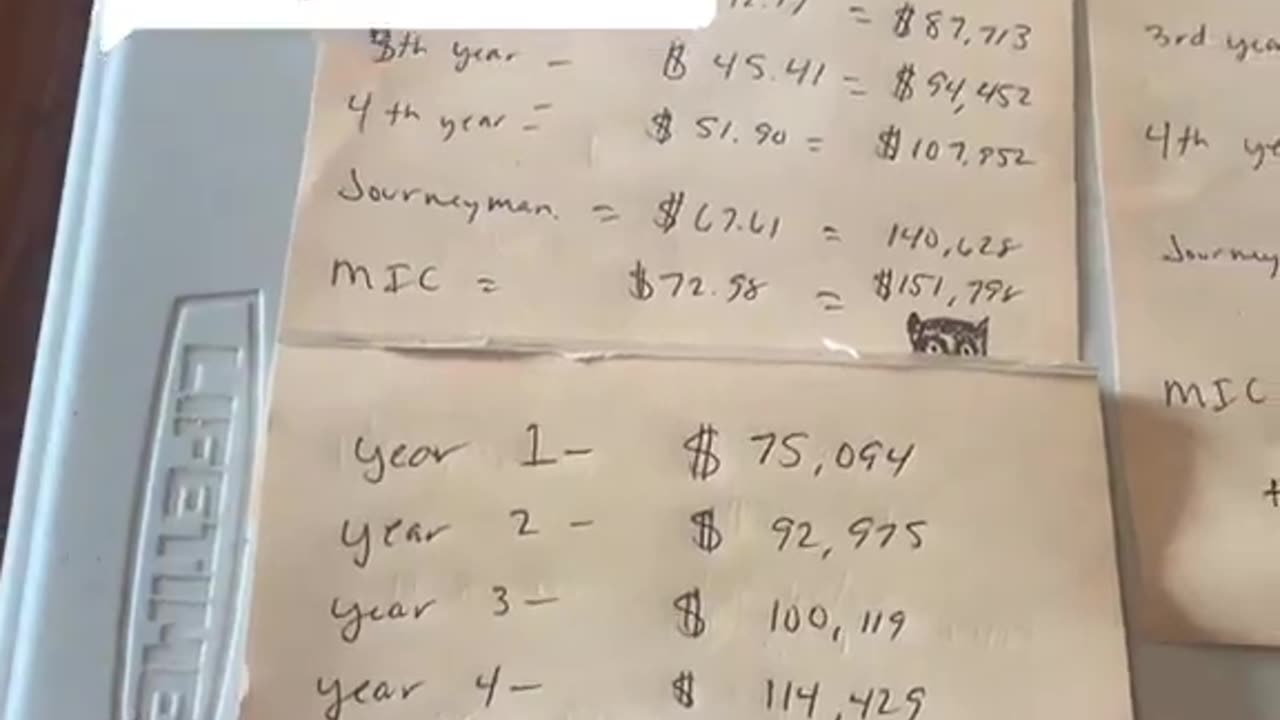 = $87,713
3th year - $ 45.41 = $94,452
4th year = $ 51.90 = $107,952
Journeyman. = $67.61 = 140,628
MIC = $72.98 = $151,798
year 1- $ 75,094
year 2 - $ 92,975
year 3- $ 100,119
year 4- $ 114,429
3rd yea
4th ye
Journey
MIC
+
LIFETIME